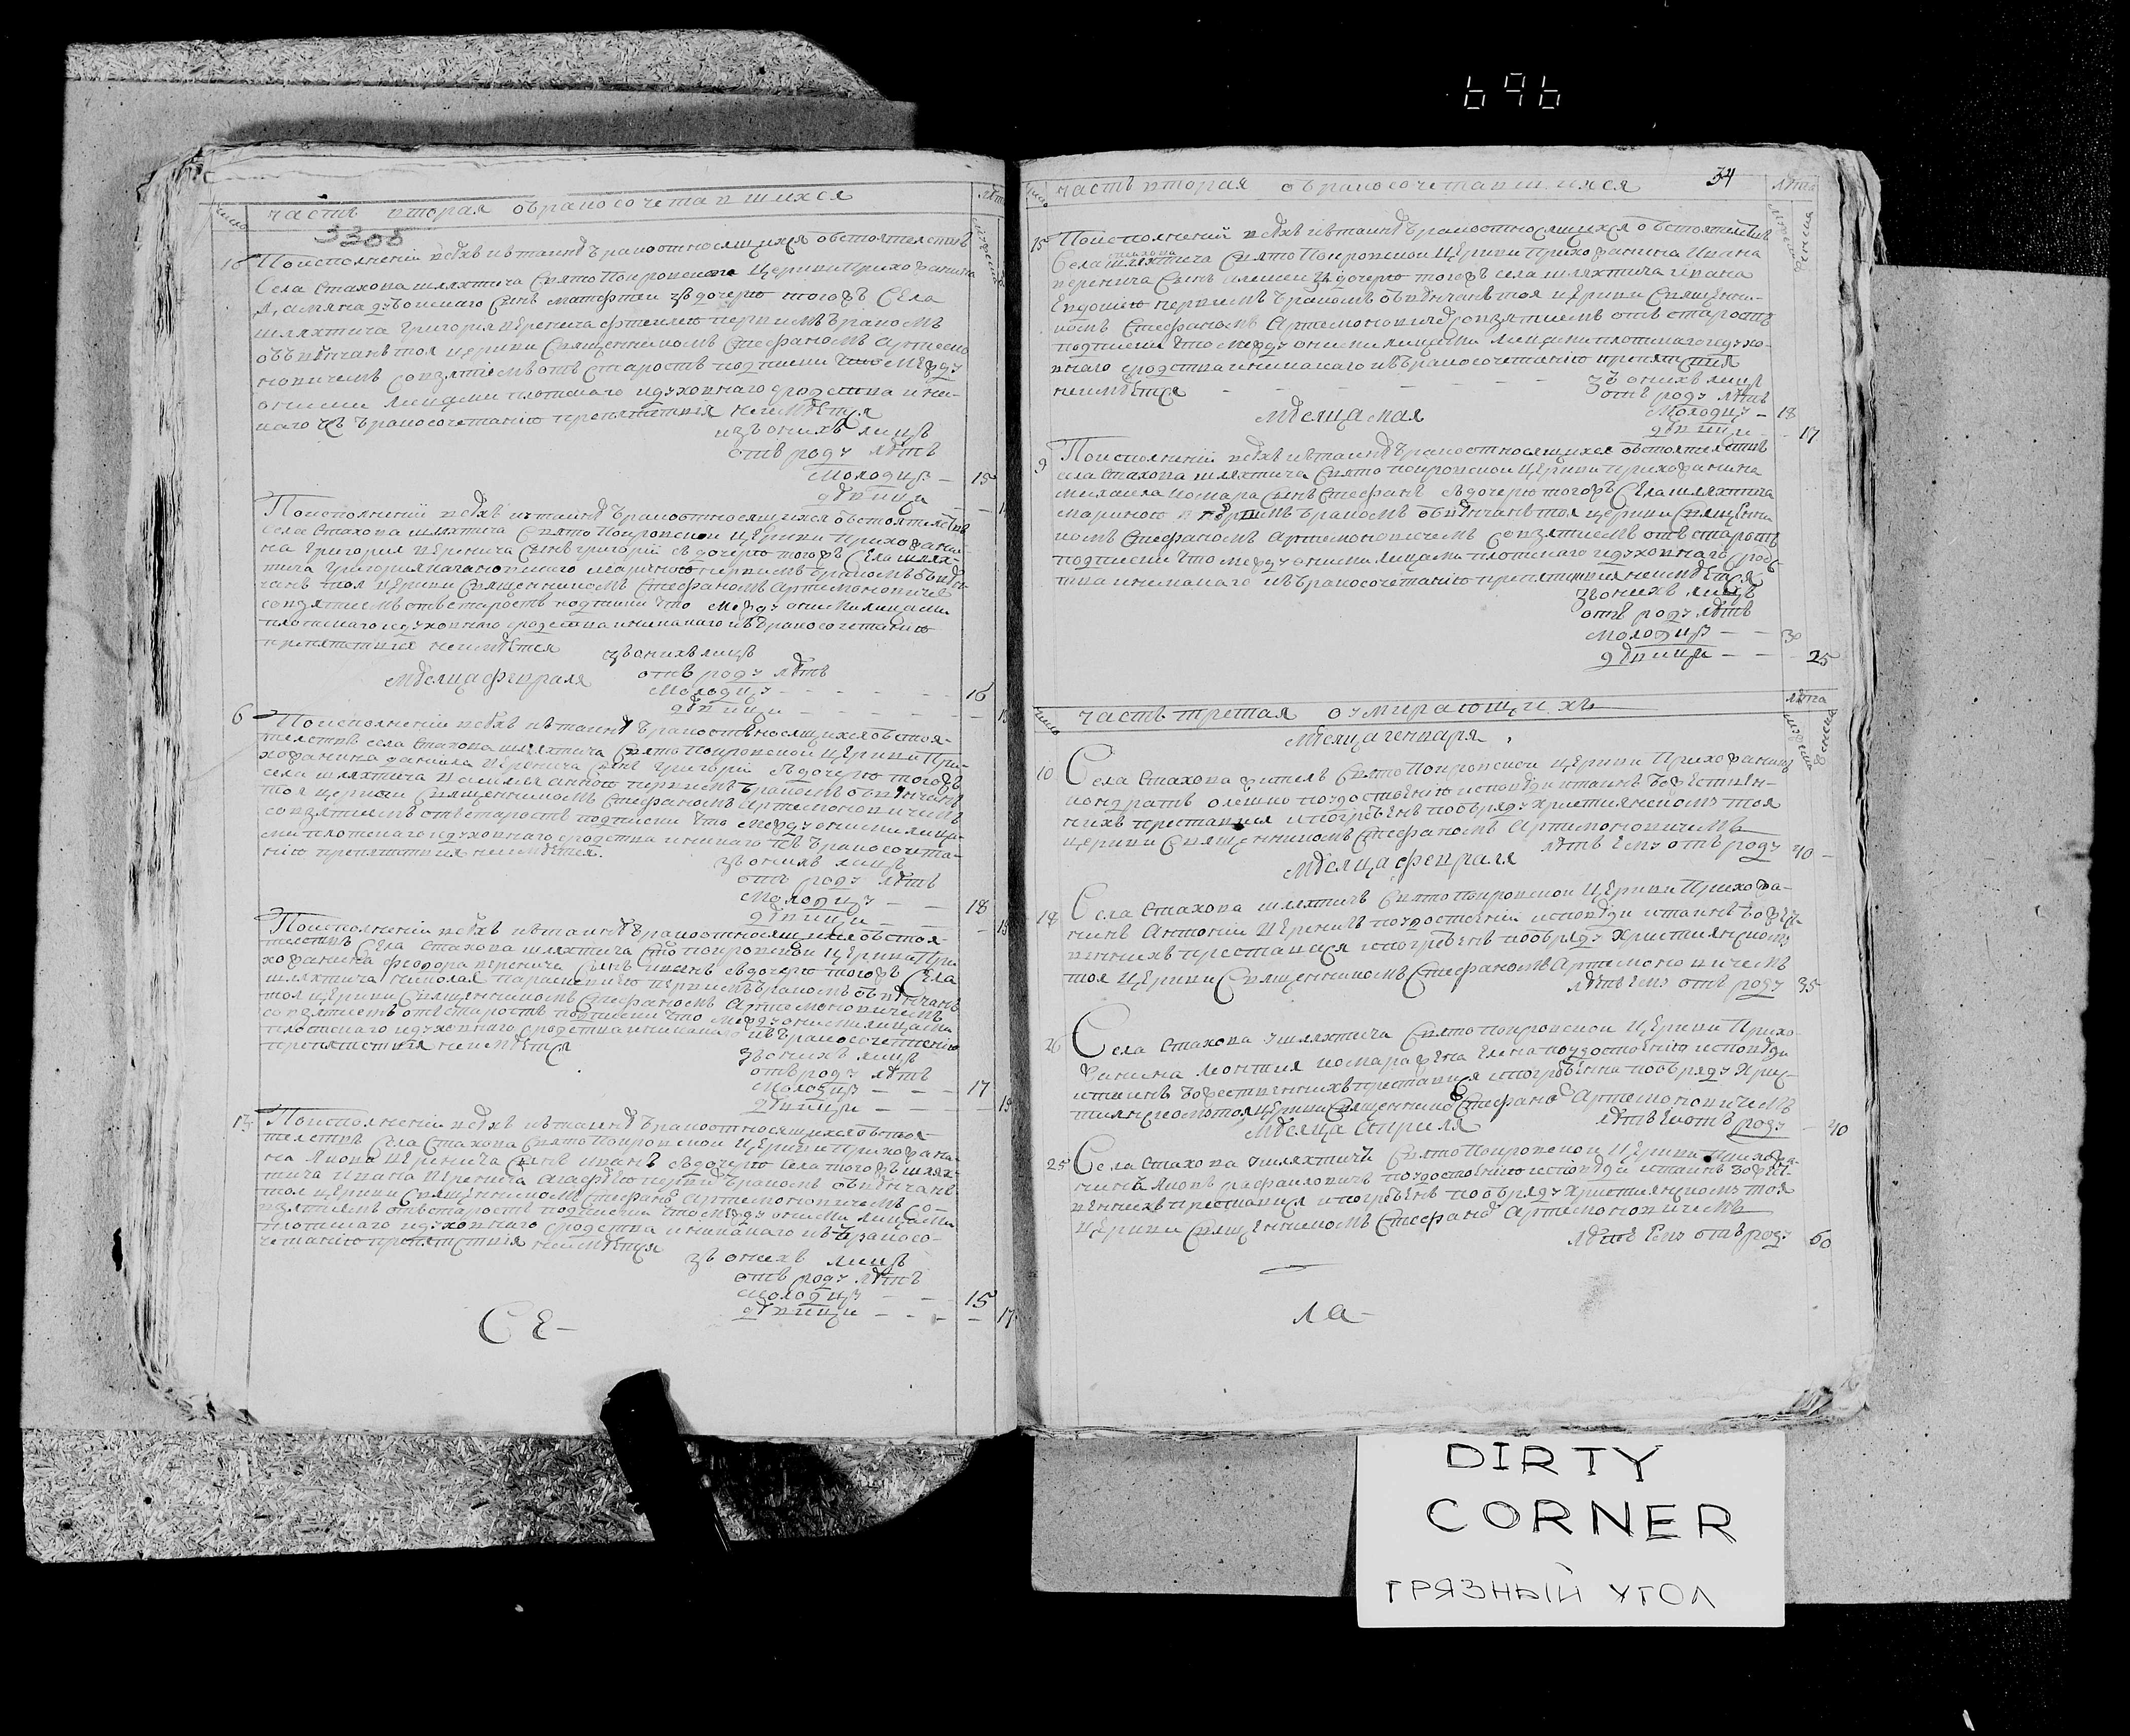 696
часть вторая о бракосочетавшихся
число
лета
3308
16
По исполнении всѣхъ къ таинѣ брака относящихся обстоятелствъ
Села Стахова шляхтича Свято Покровской Церкви Прихожанина
сынъ Матфѣй з дочерю тогожъ Села
шляхтича Григория Веренича первымъ бракомъ
обвѣнчанъ тоя церкви Священникомъ Стефаномъ Артемо
новичемъ со взятиемъ отъ старостъ подписки что между
оними лицами плотскаго и духовнаго сродства и ни-
каго къ бракосочетанию препятствия неимѣется
изъ онихъ лицъ
отъ роду лѣтъ
Молодцу — 15
дѣвици —
По исполнении всѣхъ къ таинѣ брака относящихся обстоятелствъ
Села Стахова шляхтича Свято Покровской Церкви Прихожани-
на Григория Веренича сынъ Григорий з дочерю тогожъ Села шлях-
тича Григория первымъ бракомъ обвѣн-
чанъ тоя церкви Священникомъ Стефаномъ Артемоновиче
со взятиемъ отъ старостъ подписки что между оними лицами
плотскаго и духовнаго сродства и никакаго къ бракосочетанию
препятствия неимѣется зъ онихъ лицъ
Мѣсяца февраля отъ роду лѣтъ
Молодцу — 16
дѣвици —
6
По исполнении всѣхъ къ таинѣ брака относящихся обстоя-
телствъ села Стахова шляхтича Свято Покровской Церкви При-
хожанина Данила Веренича сынъ Григорий з дочерю тогожъ
села шляхтича первымъ бракомъ обвѣнчанъ
тоя церкви Священникомъ Стефаномъ Артемоновичемъ
со взятиемъ отъ старостъ подписки что между оними лица-
ми плотскаго и духовнаго сродства и никаго къ бракосочета-
нию препятствия неимѣется.
зъ онихъ лицъ
отъ роду лѣтъ
Молодцу — 18
дѣвици —
По исполнении всѣхъ къ таинѣ брака относящихся обстоя-
телствъ Села Стахова шляхтича Свято Покровской Церкви При
хожанина Феодора Веренича сынъ Иванъ з дочерю тогожъ Села
шляхтича Николая первымъ бракомъ обвѣнчанъ
тоя церкви Священникомъ Стефаномъ Артемоновичемъ
со взятиемъ отъ старостъ подписки что между оними лицами
плотскаго и духовнаго сродства и никакаго къ бракосочетанию
препятствия неимѣется
зъ онихъ лицъ
отъ роду лѣтъ
Молодцу — 17
дѣвици —
По исполнении всѣхъ къ таинѣ брака относящихся обстоя-
телствъ Села Стахова Свято Покровской Церкви Прихожани-
на Якова Веренича сынъ Иванъ з дочерю села тогожъ шлях-
тича Ивана Веренича Агафию бракомъ обвѣнчанъ
тоя церкви Священникомъ Стефано Артемоновичемъ со-
взятиемъ отъ старостъ подписки что между оними лицами
плотскаго и духовнаго сродства и никакаго къ бракосо-
четанию препятствия неимѣется
зъ онихъ лицъ
отъ роду лѣтъ
Молодцу — 15
дѣвици — 17
СЕ-
часть вторая о бракосочетавшихся
34
лѣта
число
15
По исполнении всѣхъ къ таинѣ брака относящихся обстоятелствъ
Села Стахова шляхтича Свято Покровской Церкви Прихожанина Ивана
Веренича сынъ з дочерю тогожъ села шляхтича Ивана
Евдокию первымъ бракомъ обвѣнчанъ тоя церкви Священни-
комъ Стефаномъ Артемоновиче со взятиемъ отъ старостъ
подписки что между оними лицами плотскаго и духо-
внаго сродства и никакаго къ бракосочетанию препятствия
неимѣется зъ онихъ лицъ
отъ роду лѣтъ
Мѣсяца мая Молодцу — 18
дѣвици — 17
9
По исполнении всѣхъ къ таинѣ брака относящихся обстоятелствъ
села Стахова шляхтича Свято Покровской Церкви Прихожанина
Михаила Комара сынъ Стефанъ з дочерю тогожъ Села шляхтича
Мариною первымъ бракомъ обвѣнчанъ тоя церкви Священни
комъ Стефаномъ Артемоновичемъ со взятиемъ отъ старостъ
подписки что между оними лицами плотскаго и духовнаго срод
тва и никакаго къ бракосочетанию препятствия неимѣется
зъ онихъ лицъ
отъ роду лѣтъ
молодцу — 30
дѣвици — 25
число
часть третая о умирающихъ
лѣта
Мѣсяца генваря
10
Села Стахова житель Свято Покровской церкви Прихожанинъ
Кондратъ Олешко по удостоению исповѣди и таинъ божествен-
нихъ преставися и погребенъ по обряду християнскому тоя
церкви Священникомъ Стефаномъ Артемоновичемъ
лѣтъ ему отъ роду 40 —
Мѣсяца февраля
18
Села Стахова шляхтичъ Свято Покровской Церкви Прихожа-
нинъ Антоний Вереничъ по удостоении исповѣди и таинъ божест
веннихъ преставися и погребенъ по обряду Християнскому
тоя Церкви Священникомъ Стефаномъ Артемоновичемъ
лѣтъ ему отъ роду 35
26
Села Стахова шляхтича Свято Покровской Церкви Прихо
жанина Комара жена Елена по удостоению исповѣди
и таинъ божественнихъ преставися и погребенна по обряду Хрис-
тиянскому тоя Церкви Священнико Стефано Артемоновичемъ
Мѣсяца Априля лѣтъ ей отъ роду — 40
25
Села Стахова шляхтичъ Свято Покровской Церкви Прихожа-
нинъ Яковъ Рафаиловичъ по удостоению исповѣди и таинъ божест-
веннихъ преставися и погребенъ по обряду Християнскому тоя
Церкви Священникомъ Стефано Артемоновичемъ
лѣтъ ему отъ роду 60
ла-
DIRTY
CORNER
ГРЯЗНЫЙ УГОЛ